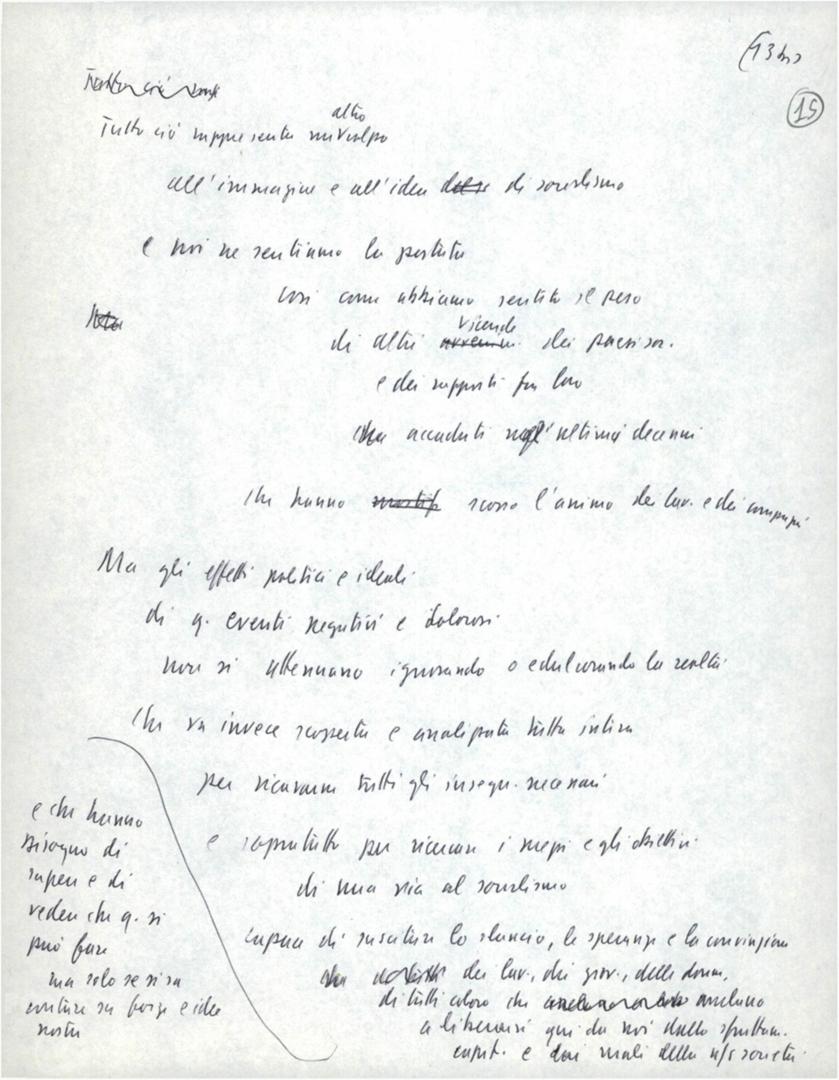 (13 bis)
15
altro
Tutto ciò rappresenta un colpo
all'immagine e all'idea di socialismo
e noi ne sentiamo la portata
così come abbiamo sentito il peso
vicende
di altre dei paesi soc.
e dei rapporti fra loro
accaduti negl'ultimi decenni
che hanno scosso l'animo dei lav. e dei compagni
Ma gli effetti politici e ideali
di q. eventi negativi e dolorosi
non si attenuano ignorando o edulcorando la realtà
che va invece scoperta e analizzata tutta intera
per ricavarne tutti gli insegn. necessari
e soprattutto per ricercare i mezzi e gli obiettivi
di una via al socialismo
capace di suscitare lo slancio, le speranze e la convinzione
dei lav., dei giov., delle donne,
di tutti coloro che anelano
a liberarsi qui da noi dallo sfruttam.
capit. e dai mali della n/s società
e che hanno
bisogno di
sapere e di
vedere che q. si
può fare
ma solo se si sa
contare su forze e idee
nostre